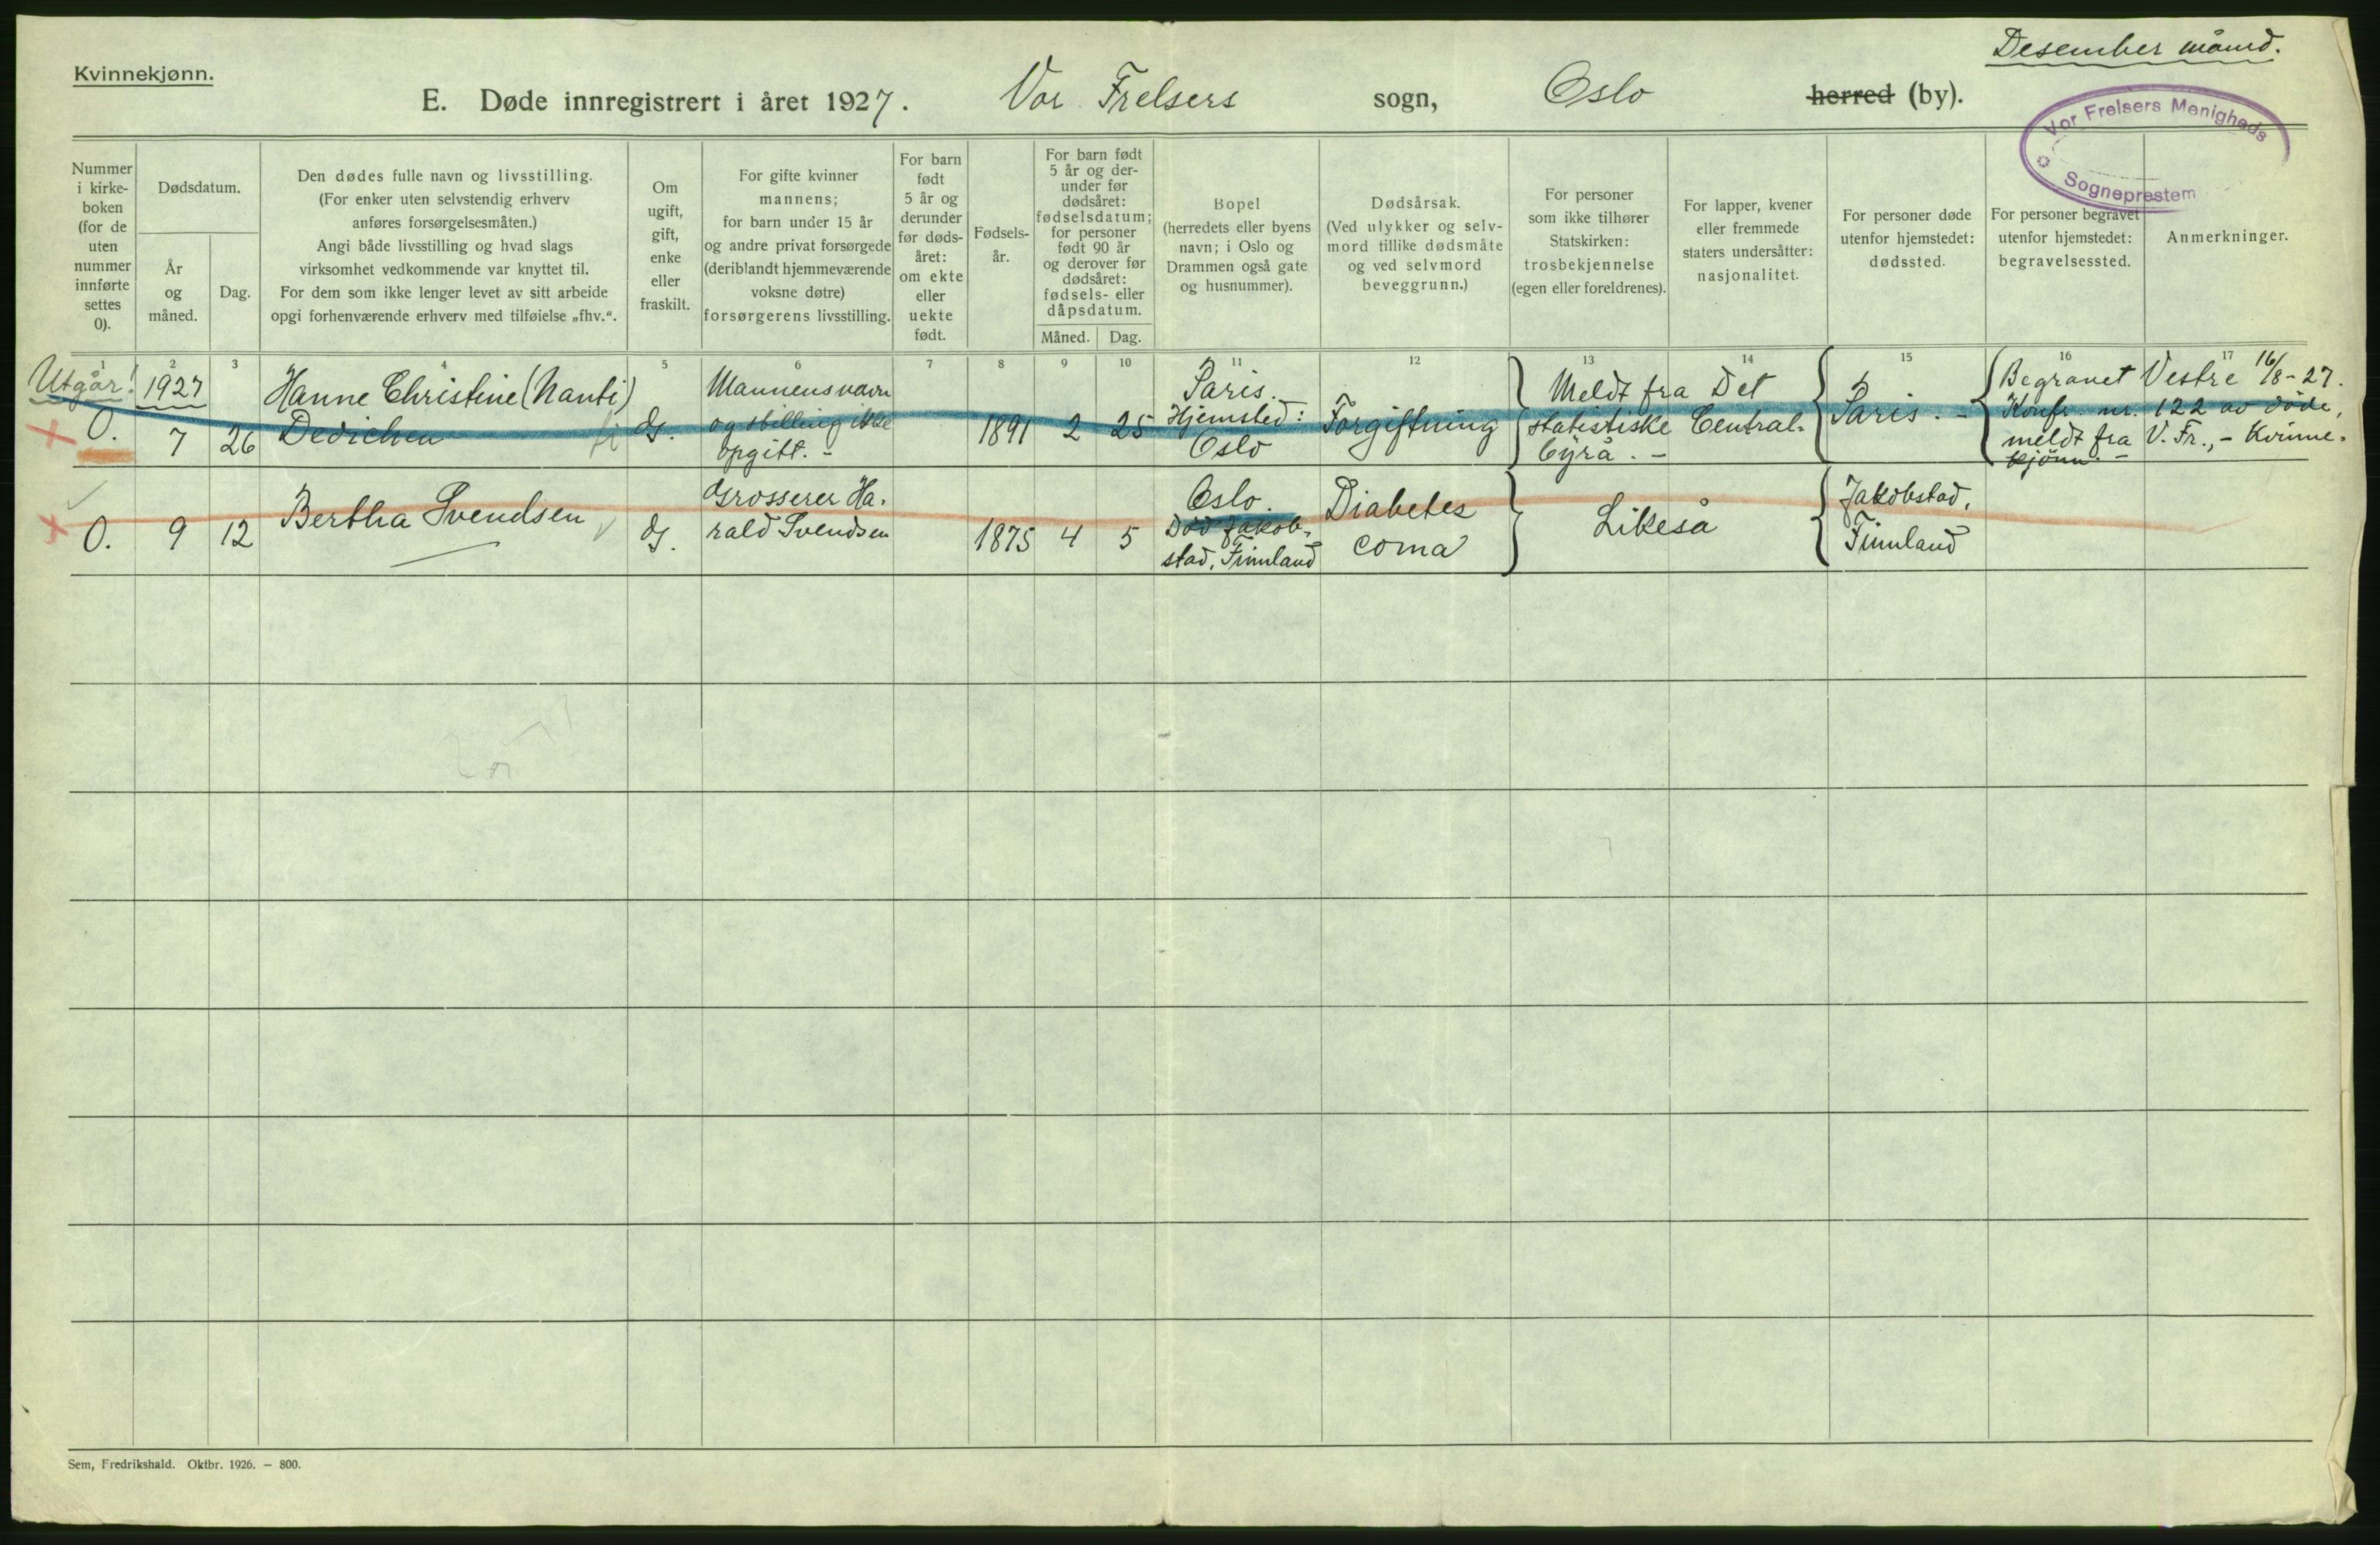 Desember måned.
Kvinnekjønn.
E. Døde innregistrert i året 1927. Vor Frelsers sogn, Oslo herred (by).
Vor Frelsers Menigheds
Sogneprestem
Nummer
i kirke-
boken
(for de
uten
nummer
innførte
settes
0).
Dødsdatum.
År
og
måned.
Dag.
Den dødes fulle navn og livsstilling.
(For enker uten selvstendig erhverv
anføres forsørgelsesmåten.)
Angi både livsstilling og hvad slags
virksomhet vedkommende var knyttet til.
For dem som ikke lenger levet av sitt arbeide
opgi forhenværende erhverv med tilføielse „fhv.“.
Om
ugift,
gift,
enke
eller
fraskilt.
For gifte kvinner
mannens;
for barn under 15 år
og andre privat forsørgede
(deriblandt hjemmeværende
voksne døtre)
forsørgerens livsstilling.
For barn
født
5 år og
derunder
før døds-
året:
om ekte
eller
uekte
født.
Fødsels-
år.
For barn født
5 år og der-
under før
dødsåret:
fødselsdatum;
for personer
født 90 år
og derover før
dødsåret:
fødsels- eller
dåpsdatum.
Måned. Dag.
Bopel
(herredets eller byens
navn; i Oslo og
Drammen også gate
og husnummer).
Dødsårsak.
(Ved ulykker og selv-
mord tillike dødsmåte
og ved selvmord
beveggrunn.)
For personer
som ikke tilhører
Statskirken:
trosbekjennelse
(egen eller foreldrenes).
For lapper, kvener
eller fremmede
staters undersåtter:
nasjonalitet.
For personer døde
utenfor hjemstedet:
dødssted.
For personer begravet
utenfor hjemstedet:
begravelsessted.
Anmerkninger.
1 2 3 4 5 6 7 8 9 10 11 12 13 14 15 16 17
Utgår!
1927
0. 7 26
Hanne Christine (Nanti)
Dedichen
G.
Mannens navn
og stilling ikke
opgitt. -
1891 2 25
Paris.
Hjemsted:
Oslo
Forgiftning
Meldt fra Det
statistiske Central-
byrå. -
Paris. -
Begravet Vestre 16/8-27.
Konfr. nr. 122 av døde,
meldt fra V. Fr., - Kvinne-
kjønn. -
0. 9 12
Bertha Svendsen
G.
Grosserer Ha-
rald Svendsen
1875 4 5
Oslo.
Død Jakob-
stad, Finnland
Diabetes
coma
Likeså
Jakobstad,
Finnland
Sem, Fredrikshald. Oktbr. 1926. — 800.